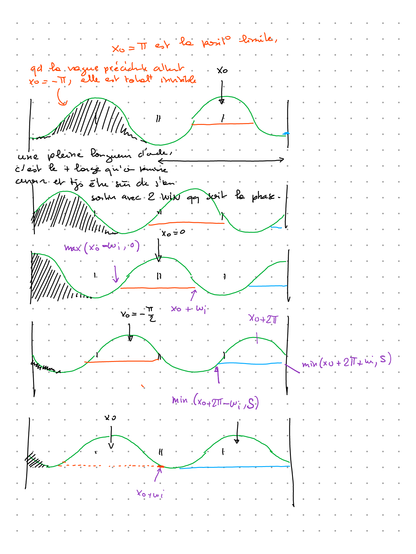 x₀ = π est la posit° limite,
qd la vague précédente atteint
x₀ = -π, elle est total^t invisible
x₀
une pleine longueur d'onde,
c'est le + large qu'on puisse
avoir et tjs être sûr de s'en
sortir avec 2 win qq soit la phase.
x₀=0
max(x₀-wᵢ, 0)
x₀ + wᵢ
x₀ = -π/2
x₀+2π
min(x₀+2π+wᵢ, S)
min (x₀+2π-wᵢ, S)
x₀
x₀+wᵢ